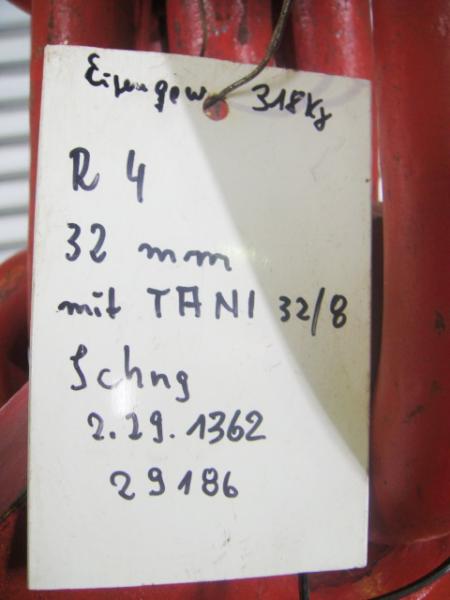 Eigengew 318Kg
R 4
32 mm
mit TANI 32/8
Schng
2.29.1362
29186